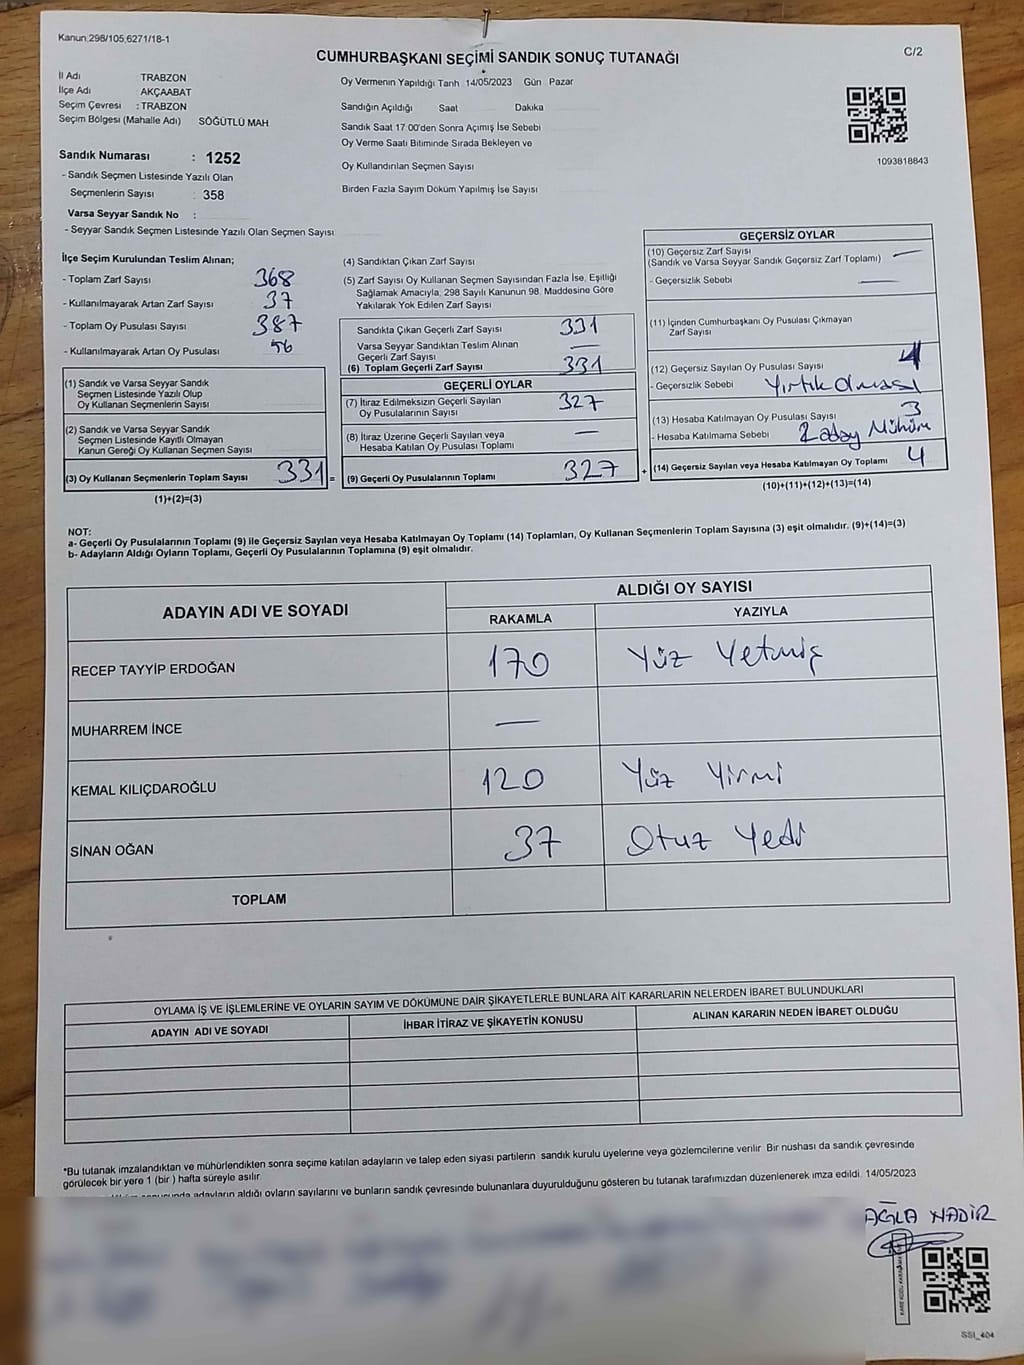 Kanun 298/105,6271/18-1
CUMHURBAŞKANI SEÇİMİ SANDIK SONUÇ TUTANAĞI
C/2
İl Adı TRABZON
İlçe Adı AKÇAABAT
Seçim Çevresi : TRABZON
Seçim Bölgesi (Mahalle Adı) SÖĞÜTLÜ MAH
Sandık Numarası : 1252
- Sandık Seçmen Listesinde Yazılı Olan
Seçmenlerin Sayısı : 358
Varsa Seyyar Sandık No :
- Seyyar Sandık Seçmen Listesinde Yazılı Olan Seçmen Sayısı
Oy Vermenin Yapıldığı Tarih 14/05/2023 Gün Pazar
Sandığın Açıldığı Saat Dakika
Sandık Saat 17 00'den Sonra Açımış İse Sebebi
Oy Verme Saati Bitiminde Sırada Bekleyen ve
Oy Kullandırılan Seçmen Sayısı
Birden Fazla Sayım Döküm Yapılmış İse Sayısı
1093818843
İlçe Seçim Kurulundan Teslim Alınan;
- Toplam Zarf Sayısı 368
- Kullanılmayarak Artan Zarf Sayısı 37
- Toplam Oy Pusulası Sayısı 387
- Kullanılmayarak Artan Oy Pusulası 56
(1) Sandık ve Varsa Seyyar Sandık
Seçmen Listesinde Yazılı Olup
Oy Kullanan Seçmenlerin Sayısı
(2) Sandık ve Varsa Seyyar Sandık
Seçmen Listesinde Kayıtlı Olmayan
Kanun Gereği Oy Kullanan Seçmen Sayısı
(3) Oy Kullanan Seçmenlerin Toplam Sayısı 331 =
(1)+(2)=(3)
(4) Sandıktan Çıkan Zarf Sayısı
(5) Zarf Sayısı Oy Kullanan Seçmen Sayısından Fazla İse, Eşitliği
Sağlamak Amacıyla, 298 Sayılı Kanunun 98. Maddesine Göre
Yakılarak Yok Edilen Zarf Sayısı
Sandıkta Çıkan Geçerli Zarf Sayısı 331
Varsa Seyyar Sandıktan Teslim Alınan
Geçerli Zarf Sayısı —
(6) Toplam Geçerli Zarf Sayısı 331
GEÇERLİ OYLAR
(7) İtiraz Edilmeksizin Geçerli Sayılan
Oy Pusulalarının Sayısı 327
(8) İtiraz Üzerine Geçerli Sayılan veya
Hesaba Katılan Oy Pusulası Toplamı —
(9) Geçerli Oy Pusulalarının Toplamı 327 +
GEÇERSİZ OYLAR
(10) Geçersiz Zarf Sayısı —
(Sandık ve Varsa Seyyar Sandık Geçersiz Zarf Toplamı)
- Geçersizlik Sebebi —
(11) İçinden Cumhurbaşkanı Oy Pusulası Çıkmayan
Zarf Sayısı
(12) Geçersiz Sayılan Oy Pusulası Sayısı
- Geçersizlik Sebebi Yırtık Olması
(13) Hesaba Katılmayan Oy Pusulası Sayısı 3
- Hesaba Katılmama Sebebi 2 aday Mühürü
(14) Geçersiz Sayılan veya Hesaba Katılmayan Oy Toplamı 4
(10)+(11)+(12)+(13)=(14)
NOT:
a- Geçerli Oy Pusulalarının Toplamı (9) ile Geçersiz Sayılan veya Hesaba Katılmayan Oy Toplamı (14) Toplamları, Oy Kullanan Seçmenlerin Toplam Sayısına (3) eşit olmalıdır. (9)+(14)=(3)
b- Adayların Aldığı Oyların Toplamı, Geçerli Oy Pusulalarının Toplamına (9) eşit olmalıdır.
ADAYIN ADI VE SOYADI
ALDIĞI OY SAYISI
RAKAMLA YAZIYLA
RECEP TAYYİP ERDOĞAN 170 Yüz Yetmiş
MUHARREM İNCE —
KEMAL KILIÇDAROĞLU 120 Yüz Yirmi
SİNAN OĞAN 37 Otuz Yedi
TOPLAM
OYLAMA İŞ VE İŞLEMLERİNE VE OYLARIN SAYIM VE DÖKÜMÜNE DAİR ŞİKAYETLERLE BUNLARA AİT KARARLARIN NELERDEN İBARET BULUNDUKLARI
ADAYIN ADI VE SOYADI İHBAR İTİRAZ VE ŞİKAYETİN KONUSU ALINAN KARARIN NEDEN İBARET OLDUĞU
*Bu tutanak imzalandıktan ve mühürlendikten sonra seçime katılan adayların ve talep eden siyasi partilerin sandık kurulu üyelerine veya gözlemcilerine verilir Bir nüshası da sandık çevresinde
görülecek bir yere 1 (bir ) hafta süreyle asılır
adayların aldığı oyların sayılarını ve bunların sandık çevresinde bulunanlara duyurulduğunu gösteren bu tutanak tarafımızdan düzenlenerek imza edildi. 14/05/2023
AĞLA NADİR
SSI_404